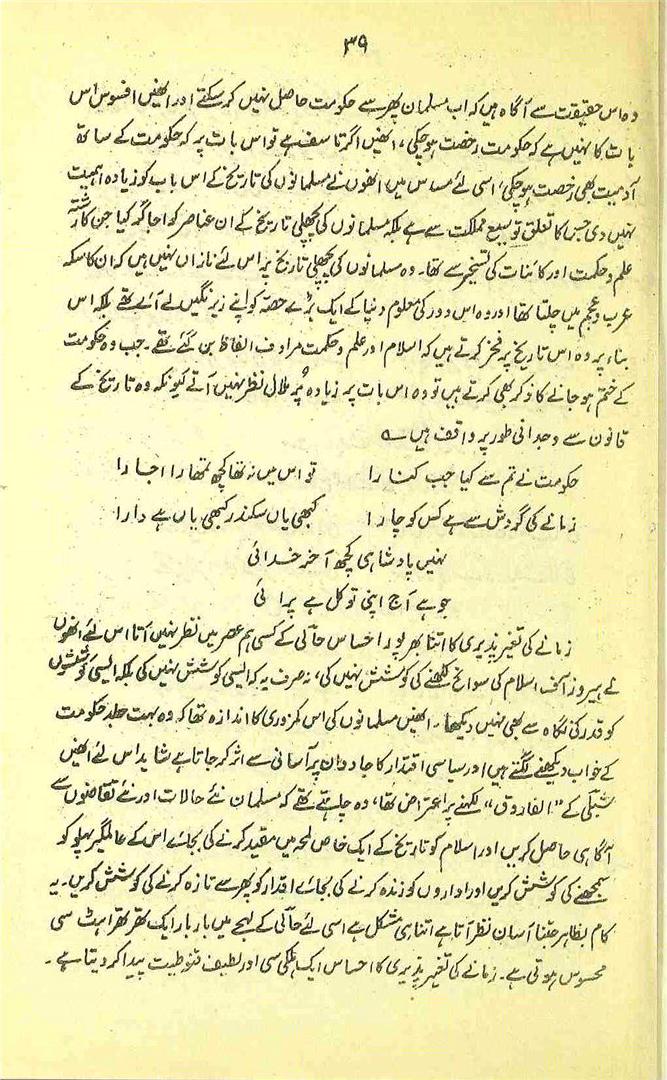 ۳۹
وہ اس حقیقت سے آگاہ ہیں کہ اب مسلمان پھر سے حکومت حاصل نہیں کر سکتے اور انھیں افسوس اس
بات کا نہیں ہے کہ حکومت رخصت ہو چکی، انھیں اگر تاسف ہے تو اس بات پر کہ حکومت کے ساتھ
آدمیت بھی رخصت ہو چکی، اسی لئے مسدس میں انھوں نے مسلمانوں کی تاریخ کے اس باب کو زیادہ اہمیت
نہیں دی جس کا تعلق توسیع مملکت سے ہے بلکہ مسلمانوں کی پچھلی تاریخ کے ان عناصر کو اجاگر کیا جن کا رشتہ
علم و حکمت اور کائنات کی تسخیر سے تھا۔ وہ مسلمانوں کی پچھلی تاریخ پر اس لئے نازاں نہیں ہیں کہ ان کا سکہ
عرب و عجم میں چلتا تھا اور وہ اس دور کی معلوم دنیا کے ایک بڑے حصہ کو اپنے زیر نگیں لے آئے تھے بلکہ اس
بناء پر وہ اس تاریخ پر فخر کرتے ہیں کہ اسلام اور علم و حکمت مرادف الفاظ بن گئے تھے۔ جب وہ حکومت
کے ختم ہو جانے کا ذکر بھی کرتے ہیں تو وہ اس بات پر زیادہ پُر ملال نظر نہیں آتے کیونکہ وہ تاریخ کے
قانون سے وجدانی طور پر واقف ہیں ؎
حکومت نے تم سے کیا جب کنارا تو اس میں نہ تھا کچھ تمھارا اجارا
زمانے کی گردش سے ہے کس کو چارا کبھی یاں سکندر کبھی یاں ہے دارا
نہیں پادشاہی کچھ آخر خدائی
جو ہے آج اپنی تو کل ہے پرائی
زمانے کی تغیر پذیری کا اتنا بھرپور احساس حالی کے کسی ہم عصر میں نظر نہیں آتا اس لئے انھوں
نے ہیروز آف اسلام کی سوانح لکھنے کی کوشش نہیں کی، نہ صرف یہ کہ ایسی کوشش نہیں کی بلکہ ایسی کوششوں
کو قدر کی نگاہ سے بھی نہیں دیکھا۔ انھیں مسلمانوں کی اس کمزوری کا اندازہ تھا کہ وہ بہت جلد حکومت
کے خواب دیکھنے لگتے ہیں اور سیاسی اقتدار کا جادو ان پر آسانی سے اثر کر جاتا ہے شاید اس لئے انھیں
شبلی کے "الفاروق" لکھنے پر اعتراض تھا، وہ چاہتے تھے کہ مسلمان نئے حالات اور نئے تقاضوں سے
آگاہی حاصل کریں اور اسلام کو تاریخ کے ایک خاص لمحہ میں مقید کرنے کی بجائے اس کے عالمگیر پہلو کو
سمجھنے کی کوشش کریں اور اداروں کو زندہ کرنے کی بجائے اقدار کو پھر سے تازہ کرنے کی کوشش کریں۔ یہ
کام بظاہر جتنا آسان نظر آتا ہے اتنا ہی مشکل ہے اسی لئے حالی کے لہجے میں بار بار ایک تھرتھراہٹ سی
محسوس ہوتی ہے۔ زمانے کی تغیر پذیری کا احساس ایک ہلکی سی اور لطیف قنوطیت پیدا کر دیتا ہے۔